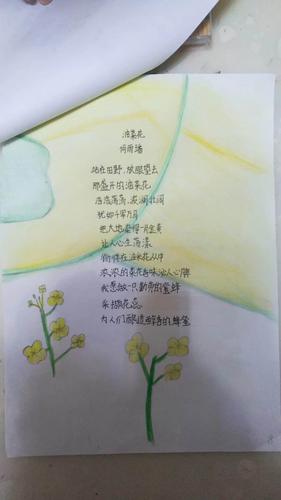 油菜花
站在田野,放眼望去
那盛开的油菜花
浩浩荡荡,波澜壮阔
犹如千军万马
把大地染得一片金黄
让人心生荡漾
徜徉在油菜花丛中
浓浓的菜花香味沁人心脾
我愿做一只勤劳的蜜蜂
采撷花蕊
为人们酿造醇香的蜂蜜